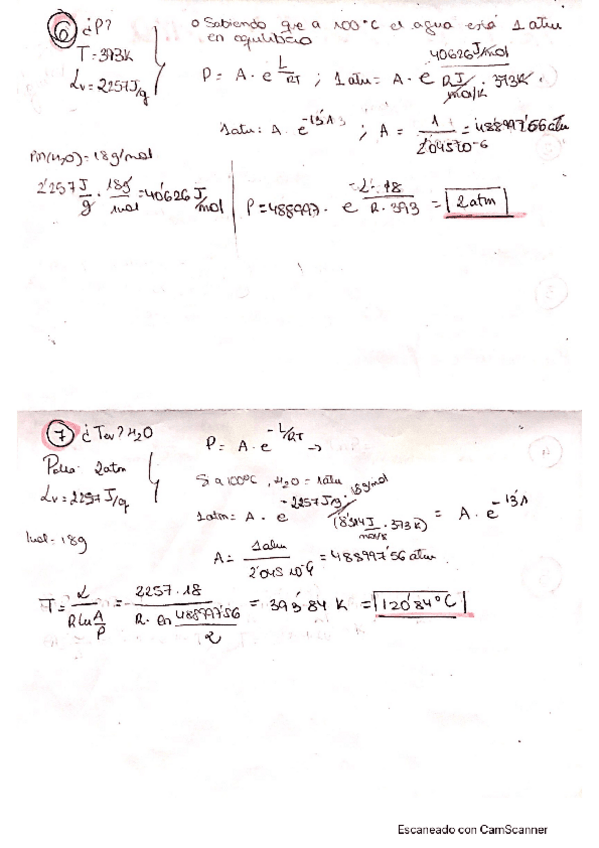 6 ¿P?
o Sabiendo que a 100°C el agua está 1 atm
en equilibrio
T = 393K
Lv = 2257J/g
P = A · e L/RT ; 1atm = A · e 40626J/mol / R J/mol/K · 373K
1atm = A · e -13'1 ; A = 1 / 2'045·10-6 = 488997'56 atm
Pm(H2O) = 18g/mol
2257 J/g · 18g/mol = 40626 J/mol
P = 488997 · e -L·18 / R·393 = 2 atm
7 ¿Tev? H2O
P = A · e -L/RT →
Polla: 2atm
Si a 100°C, H2O = 1atm
Lv = 2257 J/g
1atm = A · e -2257J/g · 18g/mol / (8'314 J/mol/K · 373K) = A · e -13'1
1mol = 18g
A = 1atm / 2'045 10-6 = 488997'56 atm
T = L / R ln A/P = 2257·18 / R · ln 488997'56/2 = 393'84 K = 120'84°C
Escaneado con CamScanner